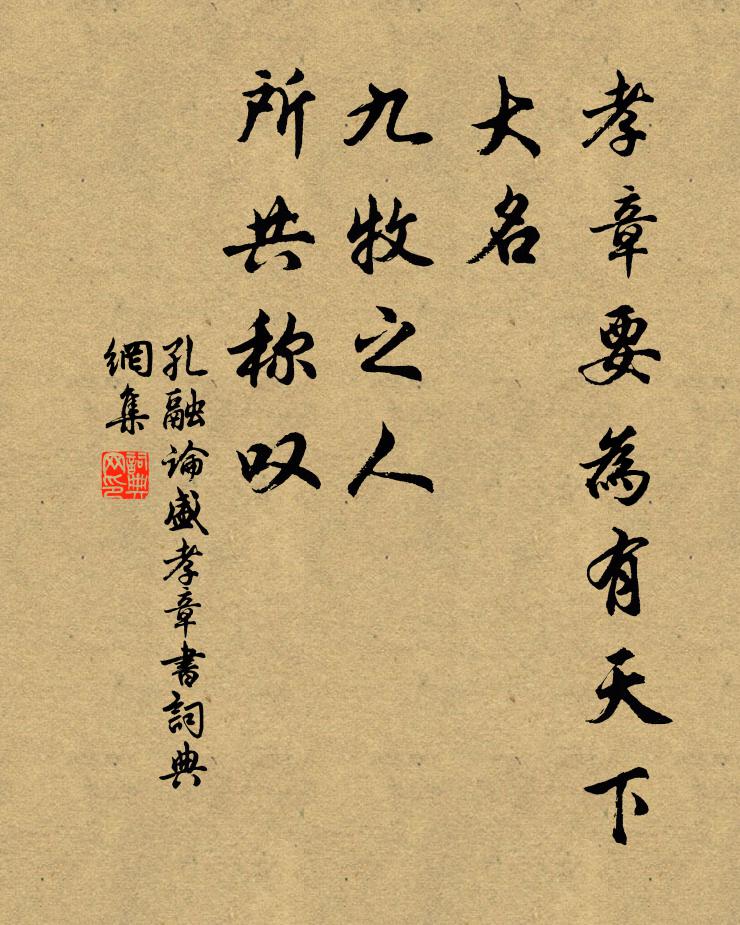 孝章要為有天下
大名
九牧之人
所共称叹
孔融论盛孝章書詞典
網集
詞典
网印